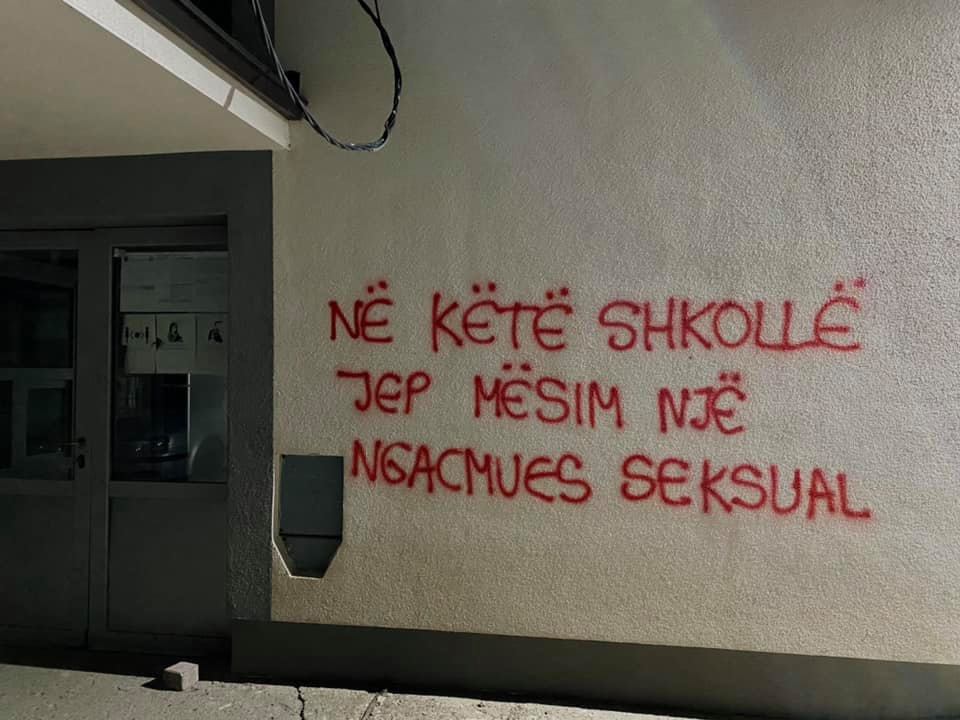 NË KËTË SHKOLLË
JEP MËSIM NJË
NGACMUES SEKSUAL